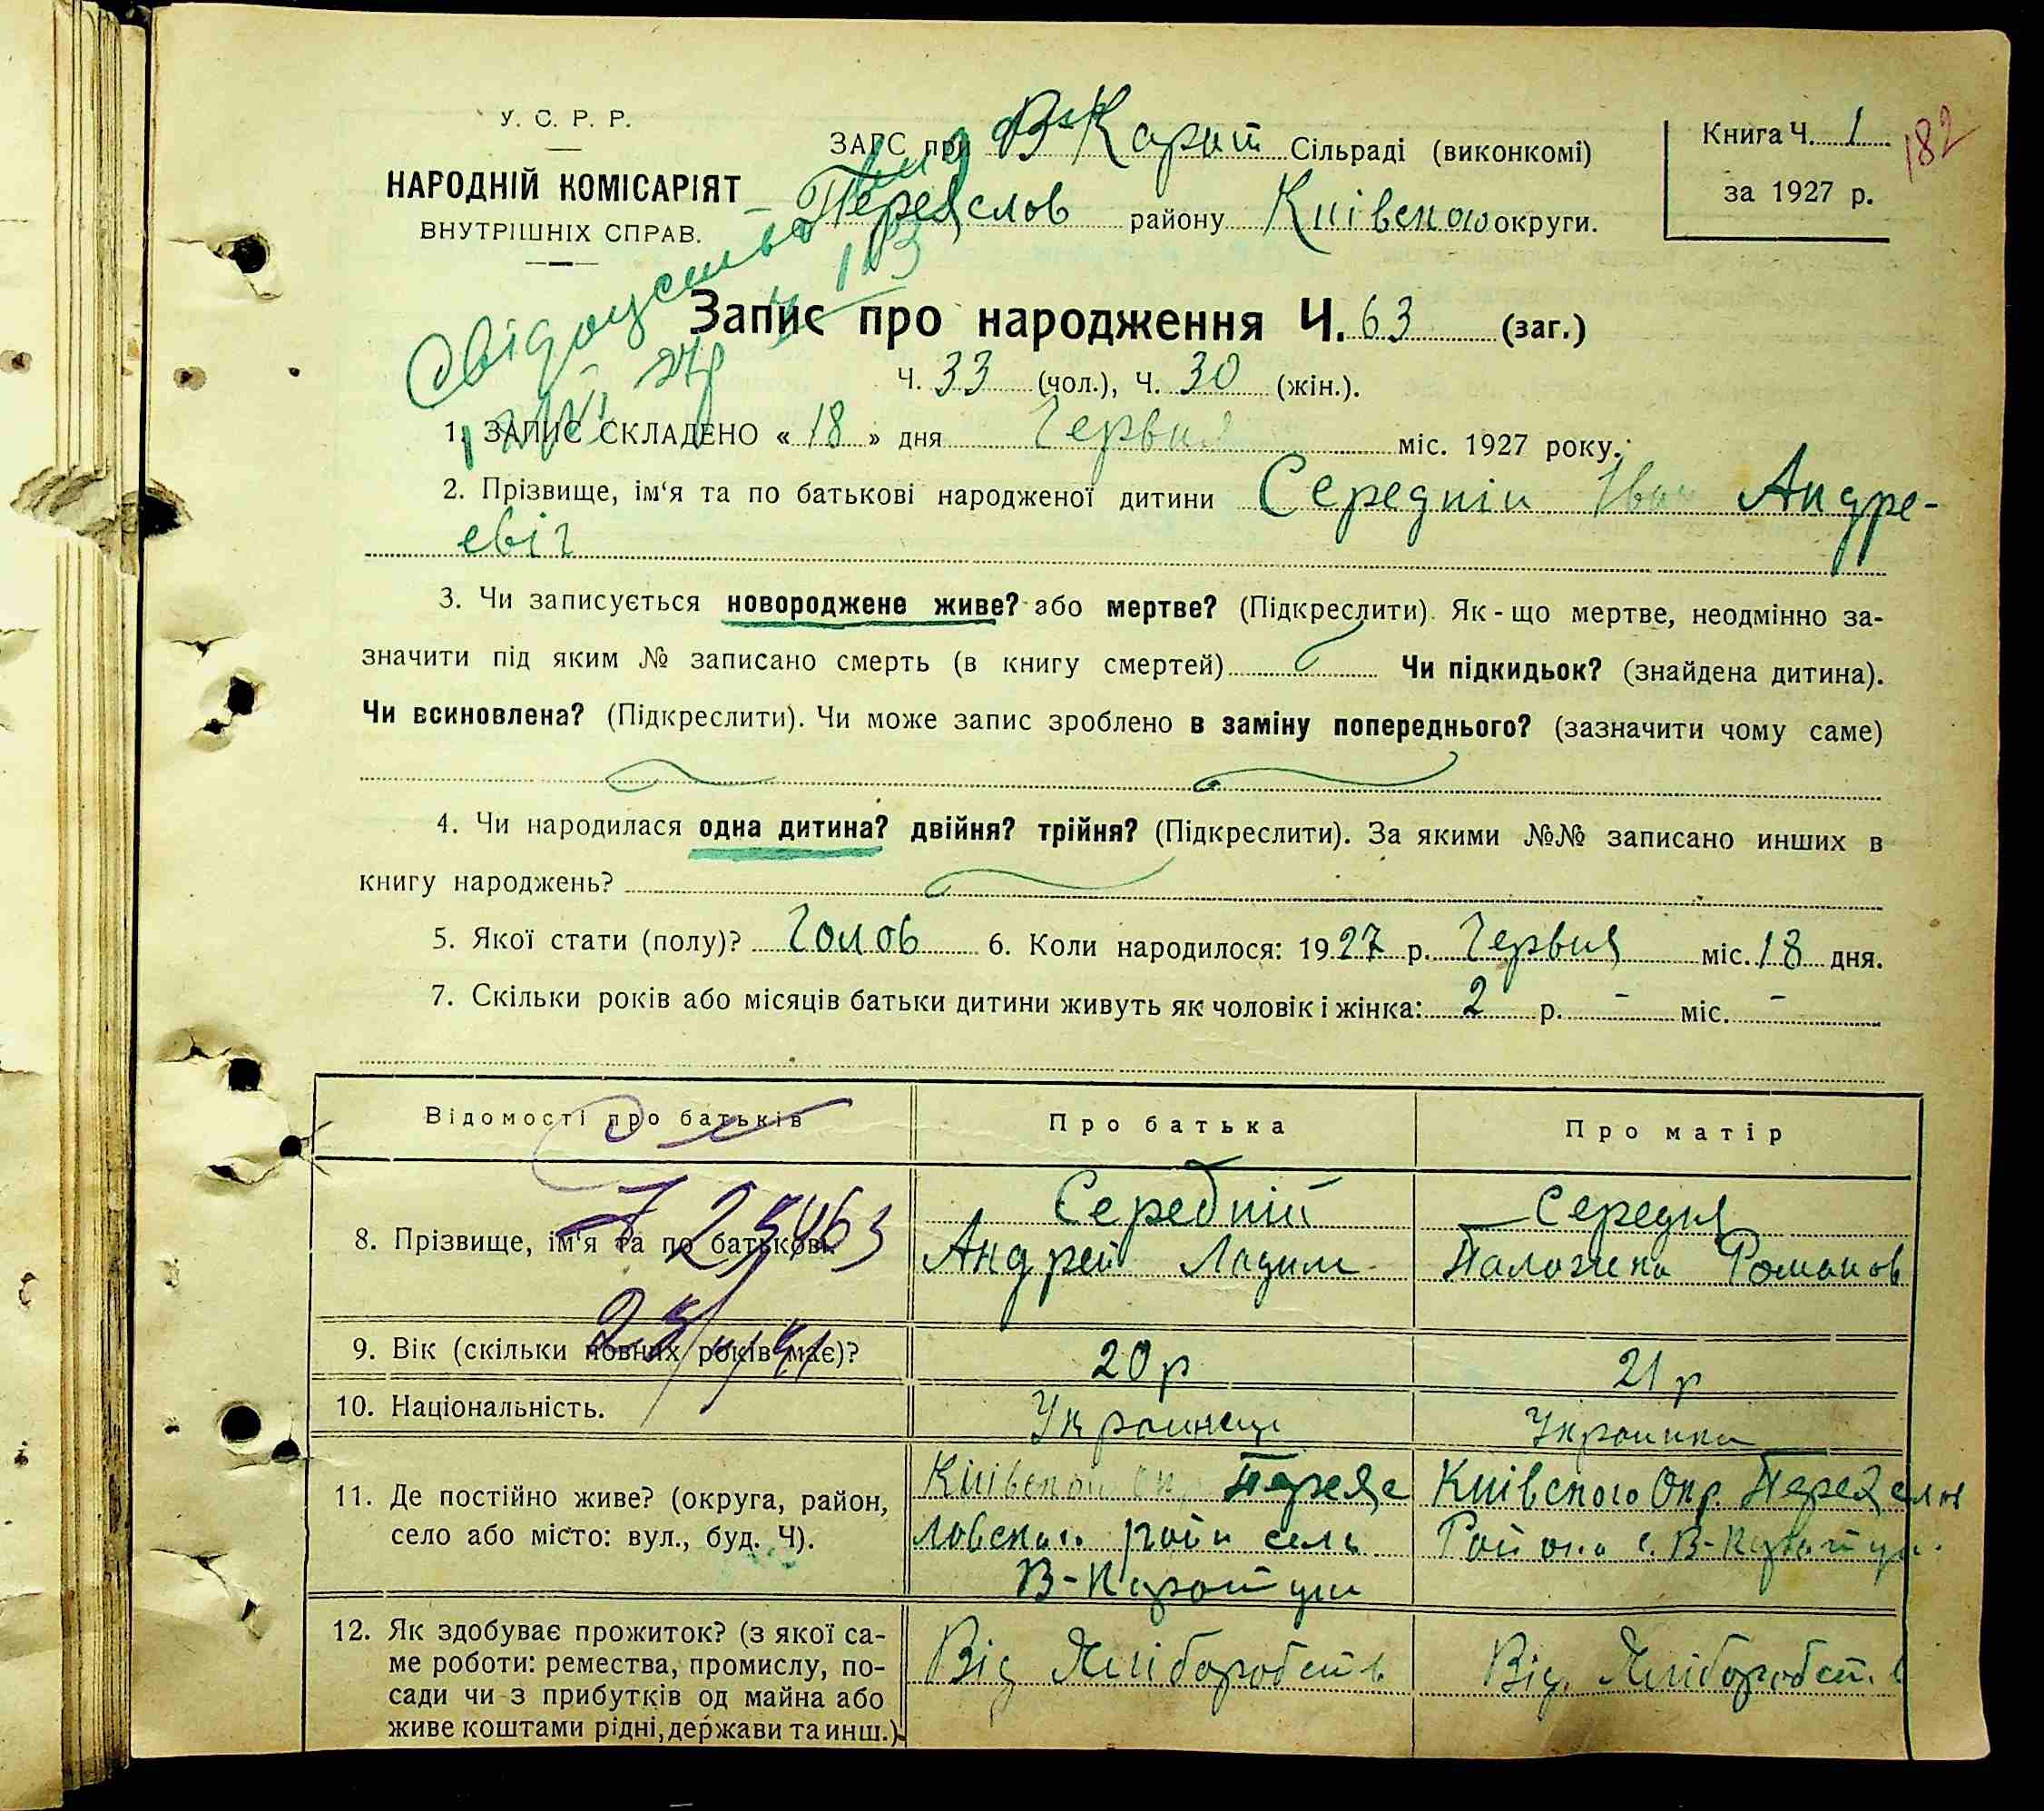 У. С. Р. Р.
НАРОДНІЙ КОМІСАРІЯТ
ВНУТРІШНІХ СПРАВ.
ЗАГС при В-Карат Сільраді (виконкомі)
Переяслов району Київського округи.
Книга Ч. 1
за 1927 р.
182
Свідоцтво
113
Запис про народження Ч. 63 (заг.)
Ч. 33 (чол.), Ч. 30 (жін.).
1. ЗАПИС СКЛАДЕНО « 18 » дня Червня міс. 1927 року.
2. Прізвище, ім‘я та по батькові народженої дитини Середній Іван Андре-
евіч
3. Чи записується новороджене живе? або мертве? (Підкреслити). Як-що мертве, неодмінно за-
значити під яким № записано смерть (в книгу смертей) Чи підкидьок? (знайдена дитина).
Чи всиновлена? (Підкреслити). Чи може запис зроблено в заміну попереднього? (зазначити чому саме)
4. Чи народилася одна дитина? двійня? трійня? (Підкреслити). За якими №№ записано инших в
книгу народжень?
5. Якої стати (полу)? Чолов 6. Коли народилося: 1927 р. Червня міс. 18 дня.
7. Скільки років або місяців батьки дитини живуть як чоловік і жінка: 2 р. - міс. -
Відомості про батьків Про батька Про матір
8. Прізвище, ім'я та по батькові. Середній Середня
Андрей Палажка Романов
9. Вік (скільки повних років має)? 20 р 21 р
10. Національність. Украинец Украинка
11. Де постійно живе? (округа, район, Київського Окр. Переяс Київського Окр. Переяслов
село або місто: вул., буд. Ч). ловськ. район село Района с. В-Каратул.
В-Каратули
12. Як здобуває прожиток? (з якої са- Від Хліборобств Від Хліборобств
ме роботи: ремества, промислу, по-
сади чи з прибутків од майна або
живе коштами рідні, держави та инш.).